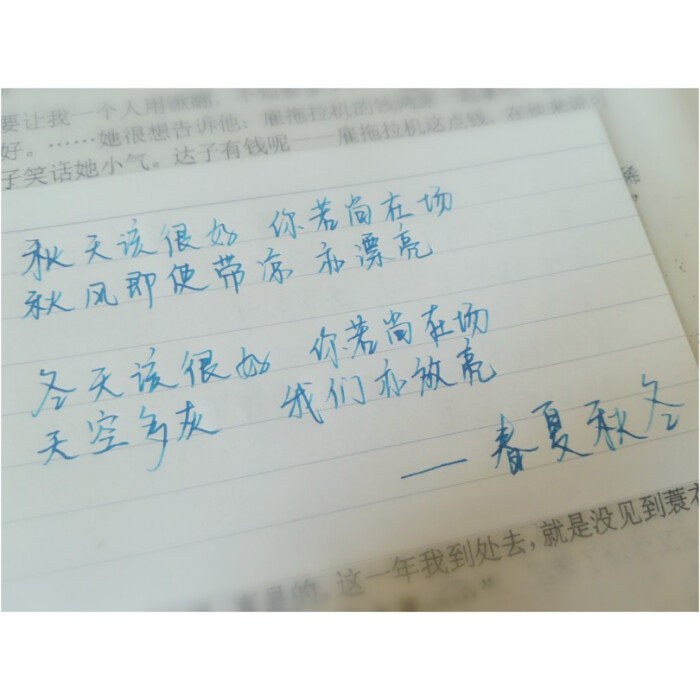 要让我一个人用锨翻，
好。……她很想告诉他：雇拖拉机的钱
子笑话她小气。达子有钱呢——雇拖拉机这点钱，在
秋天该很好 你若尚在场
秋风即使带凉 亦漂亮
冬天该很好 你若尚在场
天空多灰 我们亦放亮
——春夏秋冬
的，这一年我到处去，就是没见到蓑衣